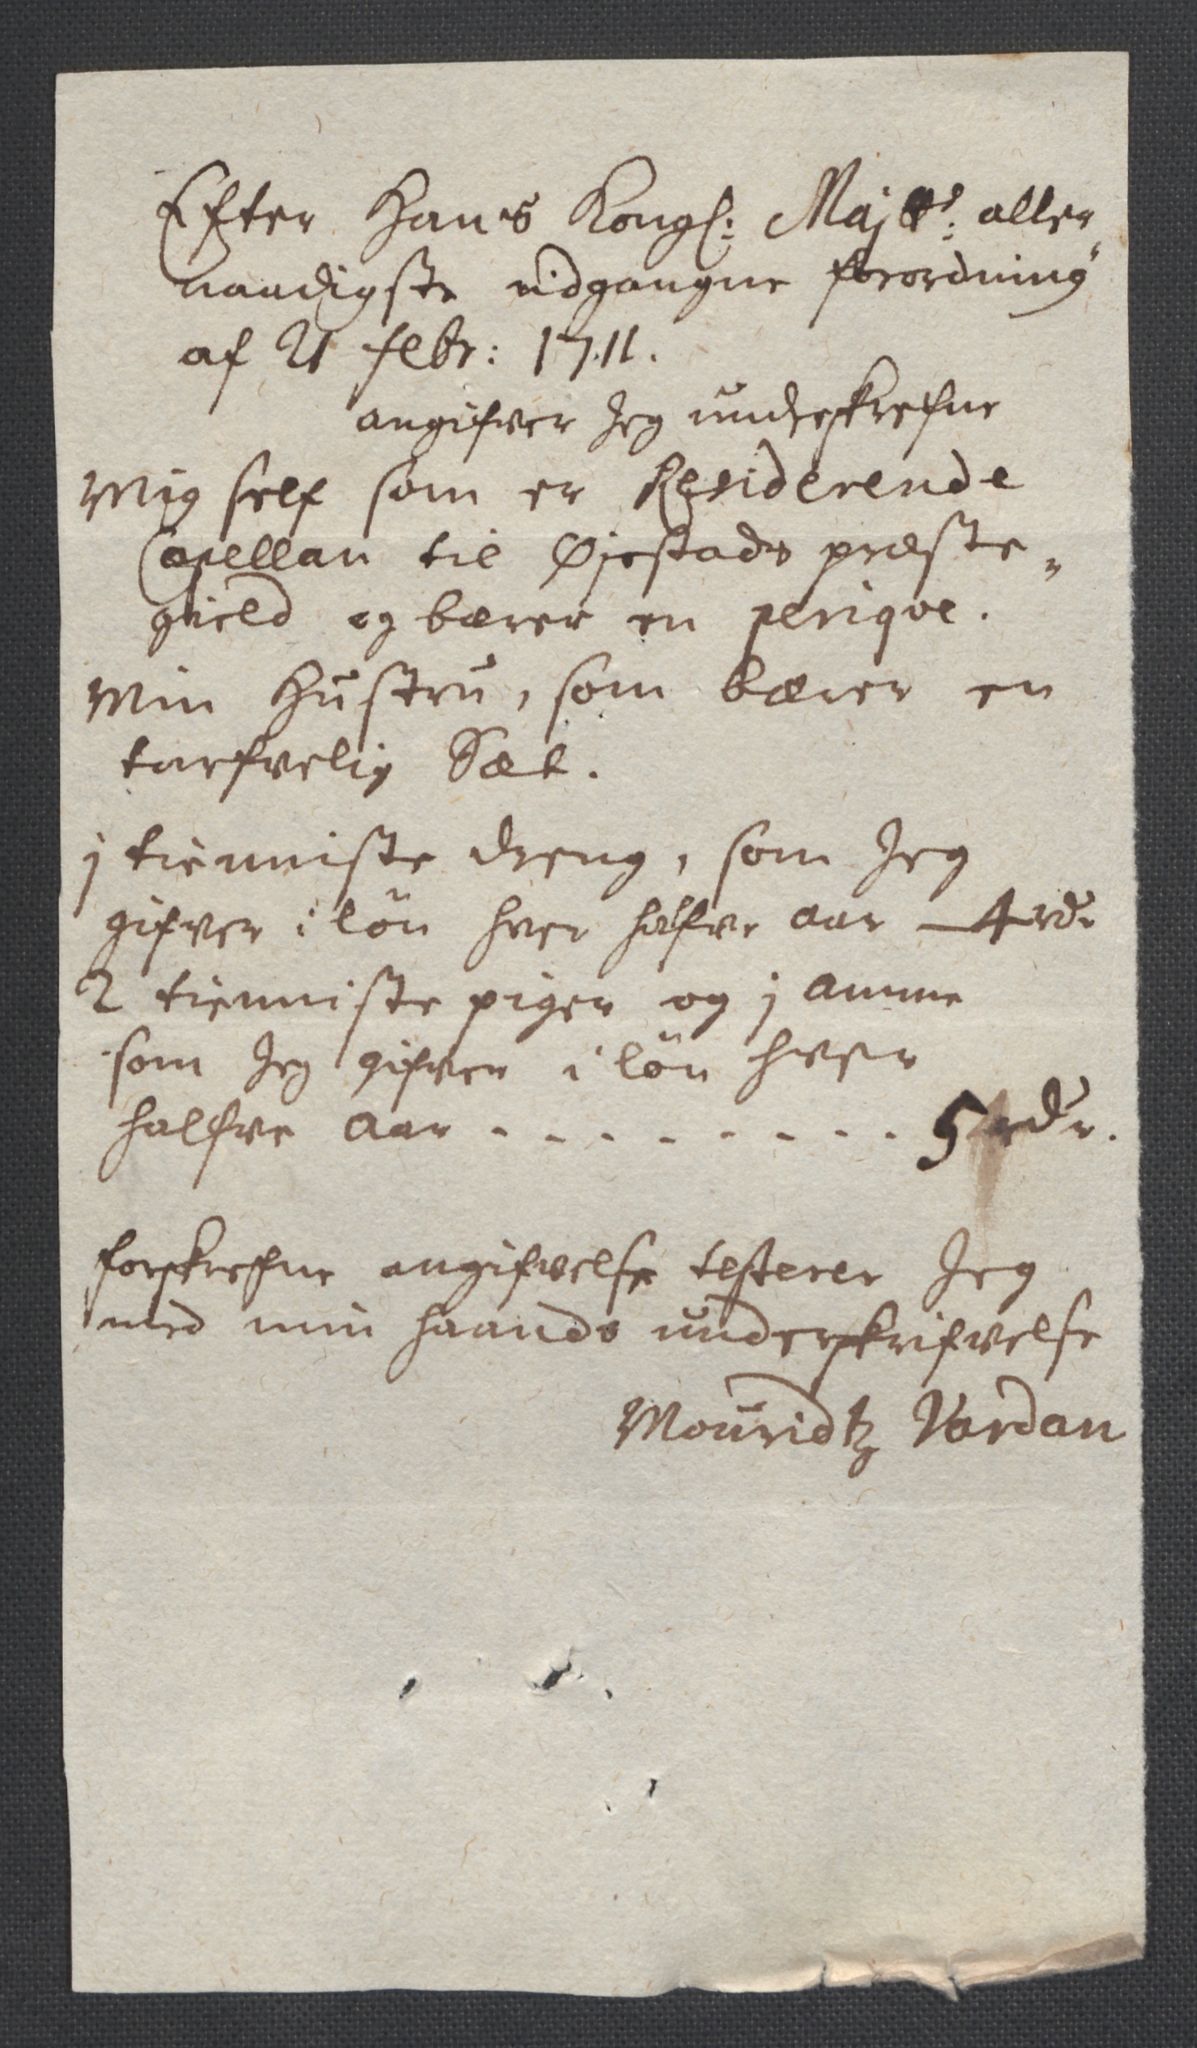 Efter Hans Kongl: Maj.tts: aller
naadigste udgangne forordning
af 21 febr: 1711.
angifver Jeg underskrefne
Mig self som er Residerende
Capellan til Øjestads præste-
gield og bærer en perique.
Min Hustru, som bærer en
tarfvelig Sæt.
j tienniste dreng, som Jeg
gifver i lön hver halfve aar - 4 rdr
2 tienniste piger og j amme
som Jeg gifver i lön hver
halfve aar - - - - - - - - - 5 rdr.
forskrefne angifvelse testerer Jeg
med min haands underskrifvelse
Mouridtz Vardan